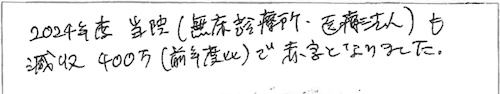 2024年度 当院(無床診療所・医療法人)も
減収 400万(前年度比)で赤字となりました。